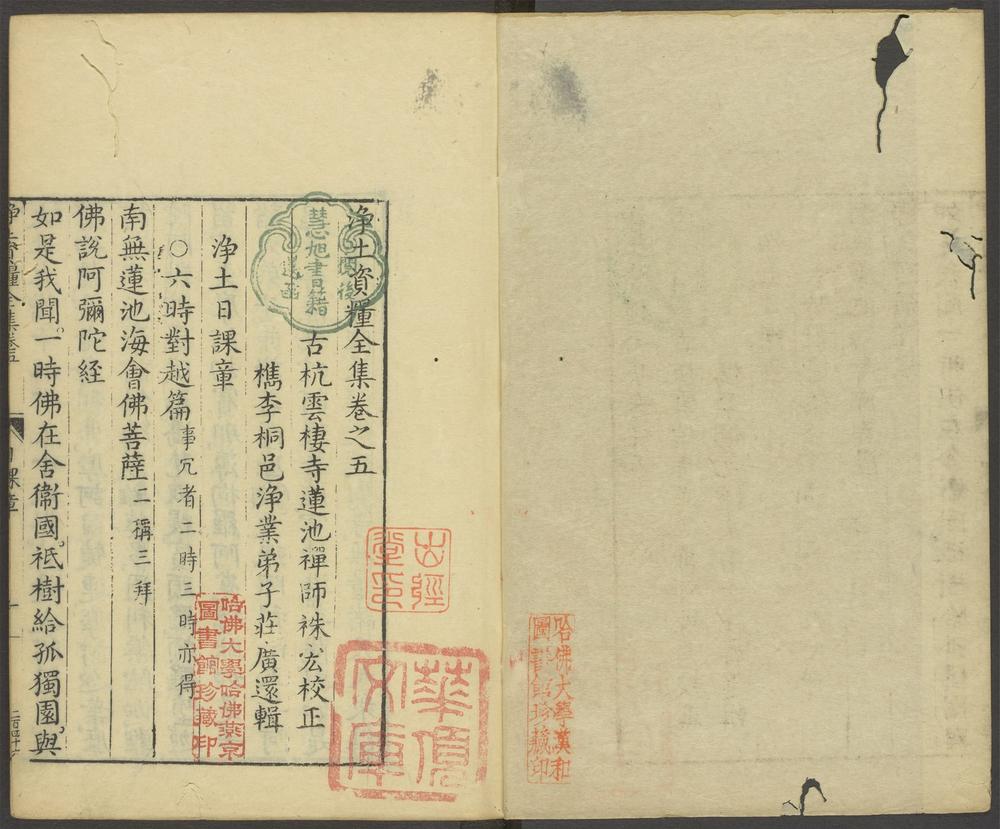 淨土資糧全集卷之五
古杭雲棲寺蓮池禪師袾宏校正
檇李桐邑淨業弟子莊廣還輯
淨土日課章
○六時對越篇事冗者二時三時亦得
南無蓮池海會佛菩薩二稱三拜
佛說阿彌陀經
如是我聞。一時佛在舍衞國。祇樹給孤獨園。與
淨土資糧全集卷五
日課章
慧旭書籍
哈佛大學哈佛燕京
圖書館珍藏印
哈佛大學漢和
圖書館珍藏印